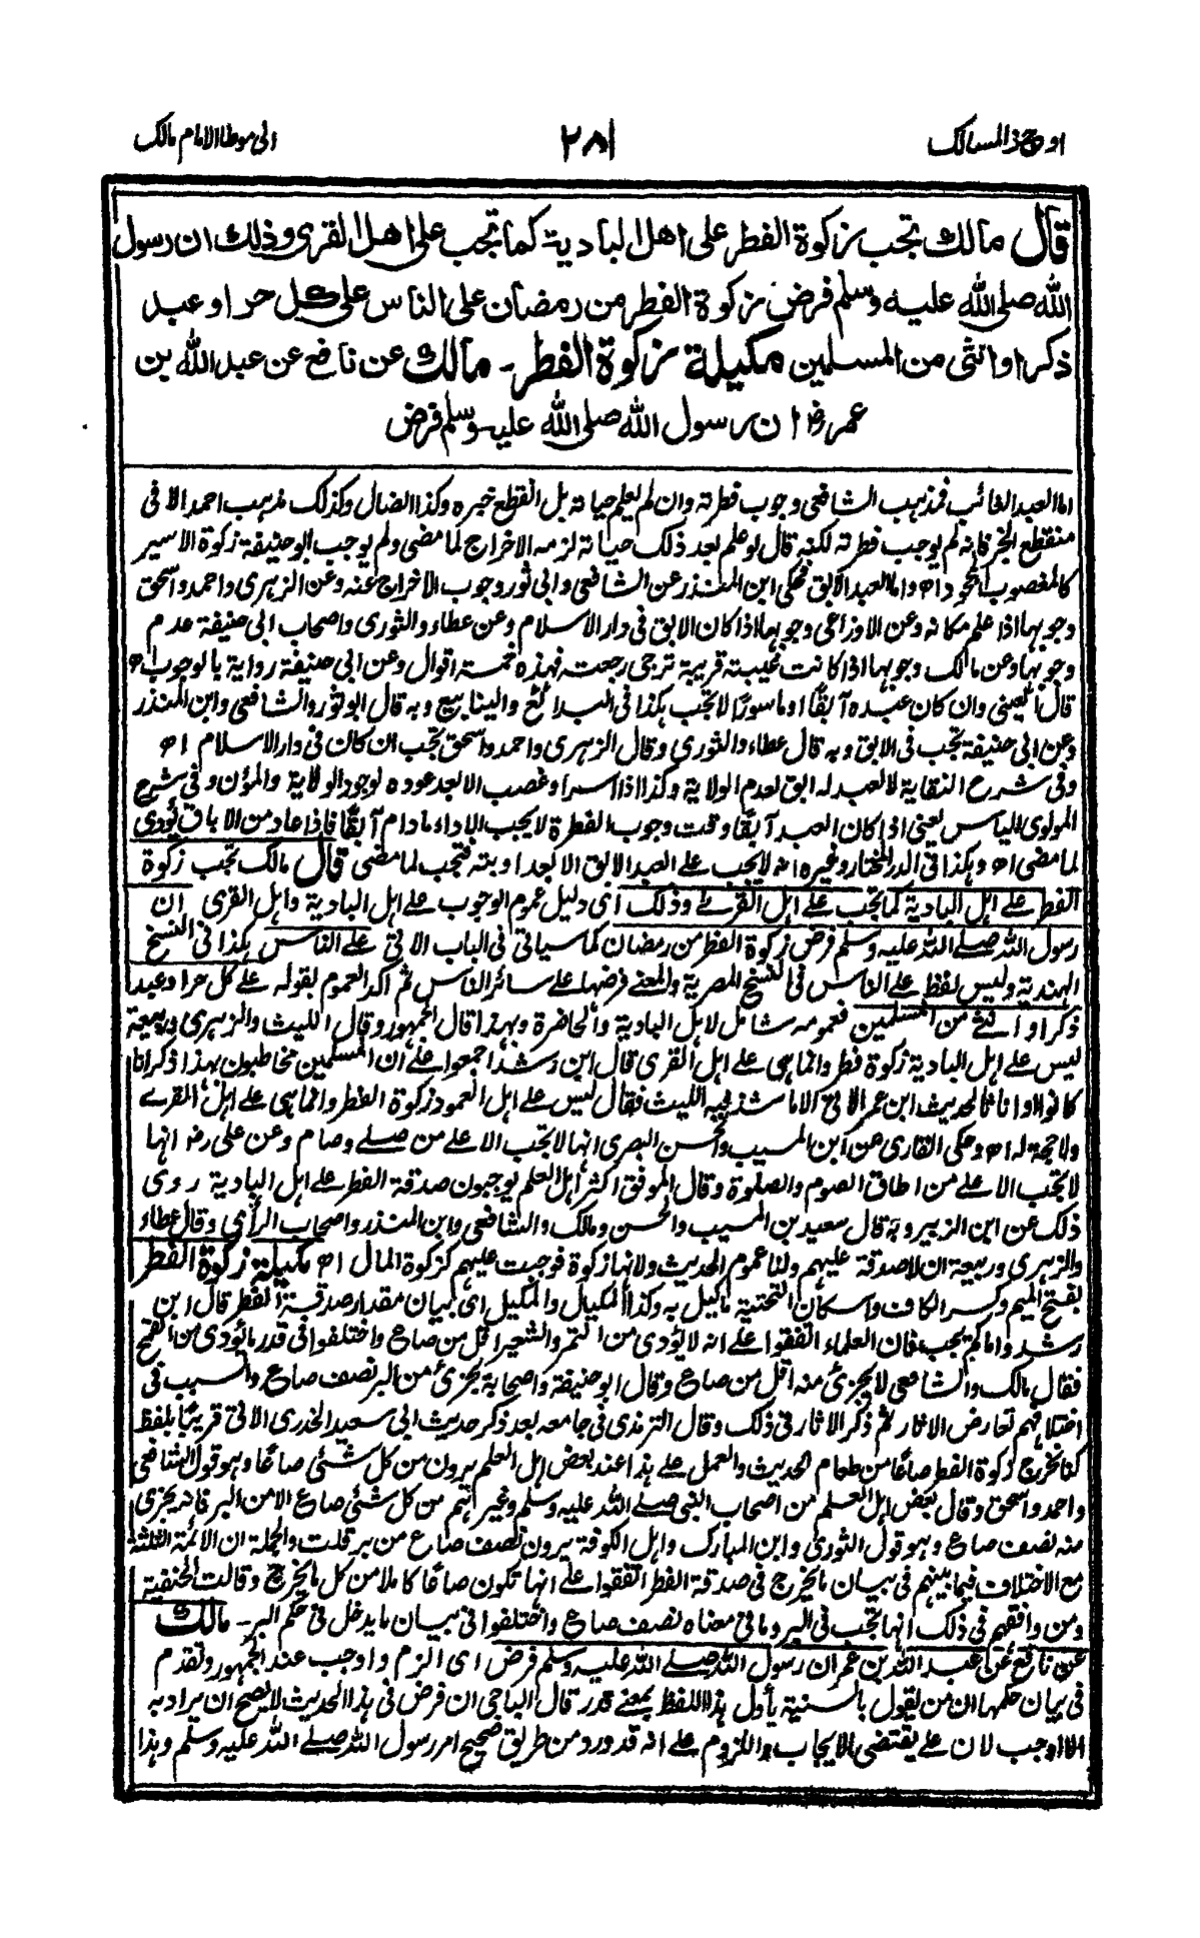 اوجز المسالك
٢٨١
الى موطا الامام مالك
قال مالك تجب زكوة الفطر على اهل البادية كما تجب على اهل القرى وذلك ان رسول
الله صلى الله عليه وسلم فرض زكوة الفطر من رمضان على الناس على كل حر او عبد
ذكر او انثى من المسلمين مكيلة زكوة الفطر۔ مالك عن نافع عن عبد الله بن
عمر رض ان رسول الله صلى الله عليه وسلم فرض
اما العبد الغائب فمذهب الشافعي وجوب فطرته وان لم يعلم حياته بل انقطع خبره وكذا الضال وكذلك مذهب احمد الا في
منقطع الخبر فانه لم يوجب فطرته لكنه قال لو علم بعد ذلك حياته لزمه الاخراج لما مضى ولم يوجب ابو حنيفة زكوة الاسير
كالمغصوب المجحود اھ واما العبد الابق فحكى ابن المنذر عن الشافعي وابي ثور وجوب الاخراج عنه وعن الزهري واحمد واسحق
وجوبها اذا علم مكانه وعن الاوزاعي وجوبها اذا كان الابق في دار الاسلام وعن عطاء والثوري واصحاب ابي حنيفة عدم
وجوبها وعن مالك وجوبها اذا كانت غيبته قريبة ترجى رجعته فهذه خمسة اقوال وعن ابي حنيفة رواية بالوجوب اھ
قال العيني وان كان عبده آبقًا او ماسورًا لا تجب هكذا في البدائع والينابيع وبه قال ابو ثور والشافعي وابن المنذر
وعن ابي حنيفة تجب في الابق وبه قال عطاء والثوري وقال الزهري واحمد واسحق تجب ان كان في دار الاسلام اھ
وفي شرح النقاية لا لعبد له ابق لعدم الولاية وكذا اذا اسر او غصب الا بعد عوده لوجود الولاية والمؤن وفي شرح
المولوي الياس يعني اذا كان العبد آبقًا وقت وجوب الفطرة لا يجب الاداء مادام آبقًا فاذا عاد من الاباق يؤدى
لما مضى اھ وهكذا في الدر المختار وغيره انه لا يجب على العبد الابق الا بعد اوبته فتجب لما مضى قال مالك تجب زكوة
الفطر على اهل البادية كما تجب على اهل القرى وذلك اى دليل عموم الوجوب على اهل البادية واهل القرى ان
رسول الله صلى الله عليه وسلم فرض زكوة الفطر من رمضان كما سياتي في الباب الاتي على الناس هكذا في النسخ
الهندية وليس لفظ على الناس في النسخ المصرية والمعنى فرضها على سائر الناس ثم اكد العموم بقوله على كل حر او عبد
ذكر او انثى من المسلمين فعمومه شامل لاهل البادية والحاضرة وبهذا قال الجمهور وقال الليث والزهري وربيعة
ليس على اهل البادية زكوة فطر وانما هي على اهل القرى قال ابن رشد اجمعوا على ان المسلمين مخاطبون بهذا ذكرانا
كانوا او اناثا لحديث ابن عمر الاتي الا ما شذ فيه الليث فقال ليس على اهل العمود زكوة الفطر وانما هي على اهل القرى
ولا حجة له اھ وحكى القاري عن ابن المسيب والحسن البصري انها لا تجب الا على من صلى وصام وعن علي رض انها
لا تجب الا على من اطاق الصوم والصلوة وقال الموفق اكثر اهل العلم يوجبون صدقة الفطر على اهل البادية روى
ذلك عن ابن الزبير وبه قال سعيد بن المسيب والحسن ومالك والشافعي وابن المنذر واصحاب الرأى وقال عطاء
والزهري وربيعة ان لا صدقة عليهم ولنا عموم الحديث ولانها زكوة فوجبت عليهم كزكوة المال اھ مكيلة زكوة الفطر
بفتح الميم وكسر الكاف واسكان التحتية ما كيل به وكذا المكيال والمكيل اى بيان مقدار صدقة الفطر قال ابن
رشد واما كم يجب فان العلماء اتفقوا على انه لا يؤدى من التمر والشعير اقل من صاع واختلفوا في قدر ما يؤدى من القمح
فقال مالك والشافعي لا يجزئ منه اقل من صاع وقال ابو حنيفة واصحابه يجزئ من البر نصف صاع والسبب في
اختلافهم تعارض الاثار ثم ذكر الاثار في ذلك وقال الترمذي في جامعه بعد ذكر حديث ابي سعيد الخدري الاتي قريبًا بلفظ
كنا نخرج زكوة الفطر صاعًا من طعام الحديث والعمل على هذا عند بعض اهل العلم يرون من كل شئى صاعًا وهو قول الشافعي
واحمد واسحق وقال بعض اهل العلم من اصحاب النبي صلى الله عليه وسلم وغيرهم من كل شئى صاع الا من البر فانه يجزى
منه نصف صاع وهو قول الثوري وابن المبارك واهل الكوفة يرون نصف صاع من بر قلت والجملة ان الائمة الثلثة
مع الاختلاف فيما بينهم في بيان ما يخرج في صدقة الفطر اتفقوا على انها تكون صاعًا كاملا من كل ما يخرج وقالت الحنفية
ومن وافقهم في ذلك انها تجب في البر وما في معناه نصف صاع واختلفوا في بيان ما يدخل في حكم البر۔ مالك
عن نافع عن عبد الله بن عمر ان رسول الله صلى الله عليه وسلم فرض اى الزم واوجب عند الجمهور وتقدم
في بيان حكمها ان من يقول بالسنية يأول هذا اللفظ بمعنى قدر قال الباجي ان فرض في هذا الحديث لا يصح ان يراد به
الا اوجب لان على يقتضى الايجاب واللزوم على انه قد ورد من طريق صحيح امر رسول الله صلى الله عليه وسلم وهذا